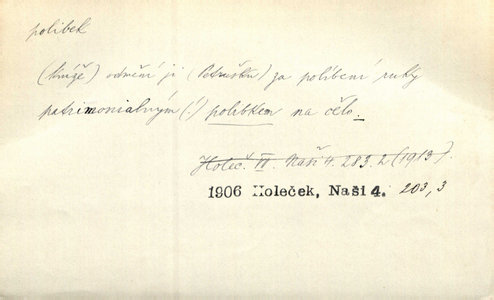 polibek
(kníže) odmění ji (Petrušku) za políbení ruky
patrimonialným (!) polibkem na čělo.
Holeč. IV. Naši 4. 283.2 (1913).
1906 Holeček, Naši 4. 203,3